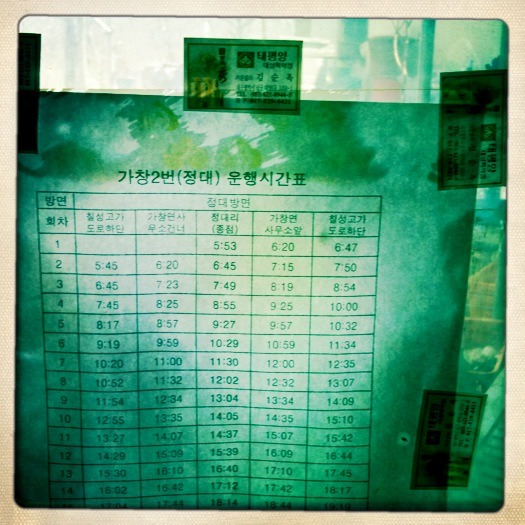 태평양
김순옥
가창2번(정대) 운행시간표
방면 정대방면
회차 칠성고가 도로하단 가창면사 무소건너 정대리 (종점) 가창면 사무소앞 칠성고가 도로하단
1 5:53 6:20 6:47
2 5:45 6:20 6:45 7:15 7:50
3 6:45 7:23 7:49 8:19 8:54
4 7:45 8:25 8:55 9:25 10:00
5 8:17 8:57 9:27 9:57 10:32
6 9:19 9:59 10:29 10:59 11:34
7 10:20 11:00 11:30 12:00 12:35
8 10:52 11:32 12:02 12:32 13:07
9 11:54 12:34 13:04 13:34 14:09
10 12:55 13:35 14:05 14:35 15:10
11 13:27 14:07 14:37 15:07 15:42
12 14:29 15:09 15:39 16:09 16:44
13 15:30 16:10 16:40 17:10 17:45
14 16:02 16:42 17:12 17:42 18:17
17:04 17:44 18:14 18:44 19:19